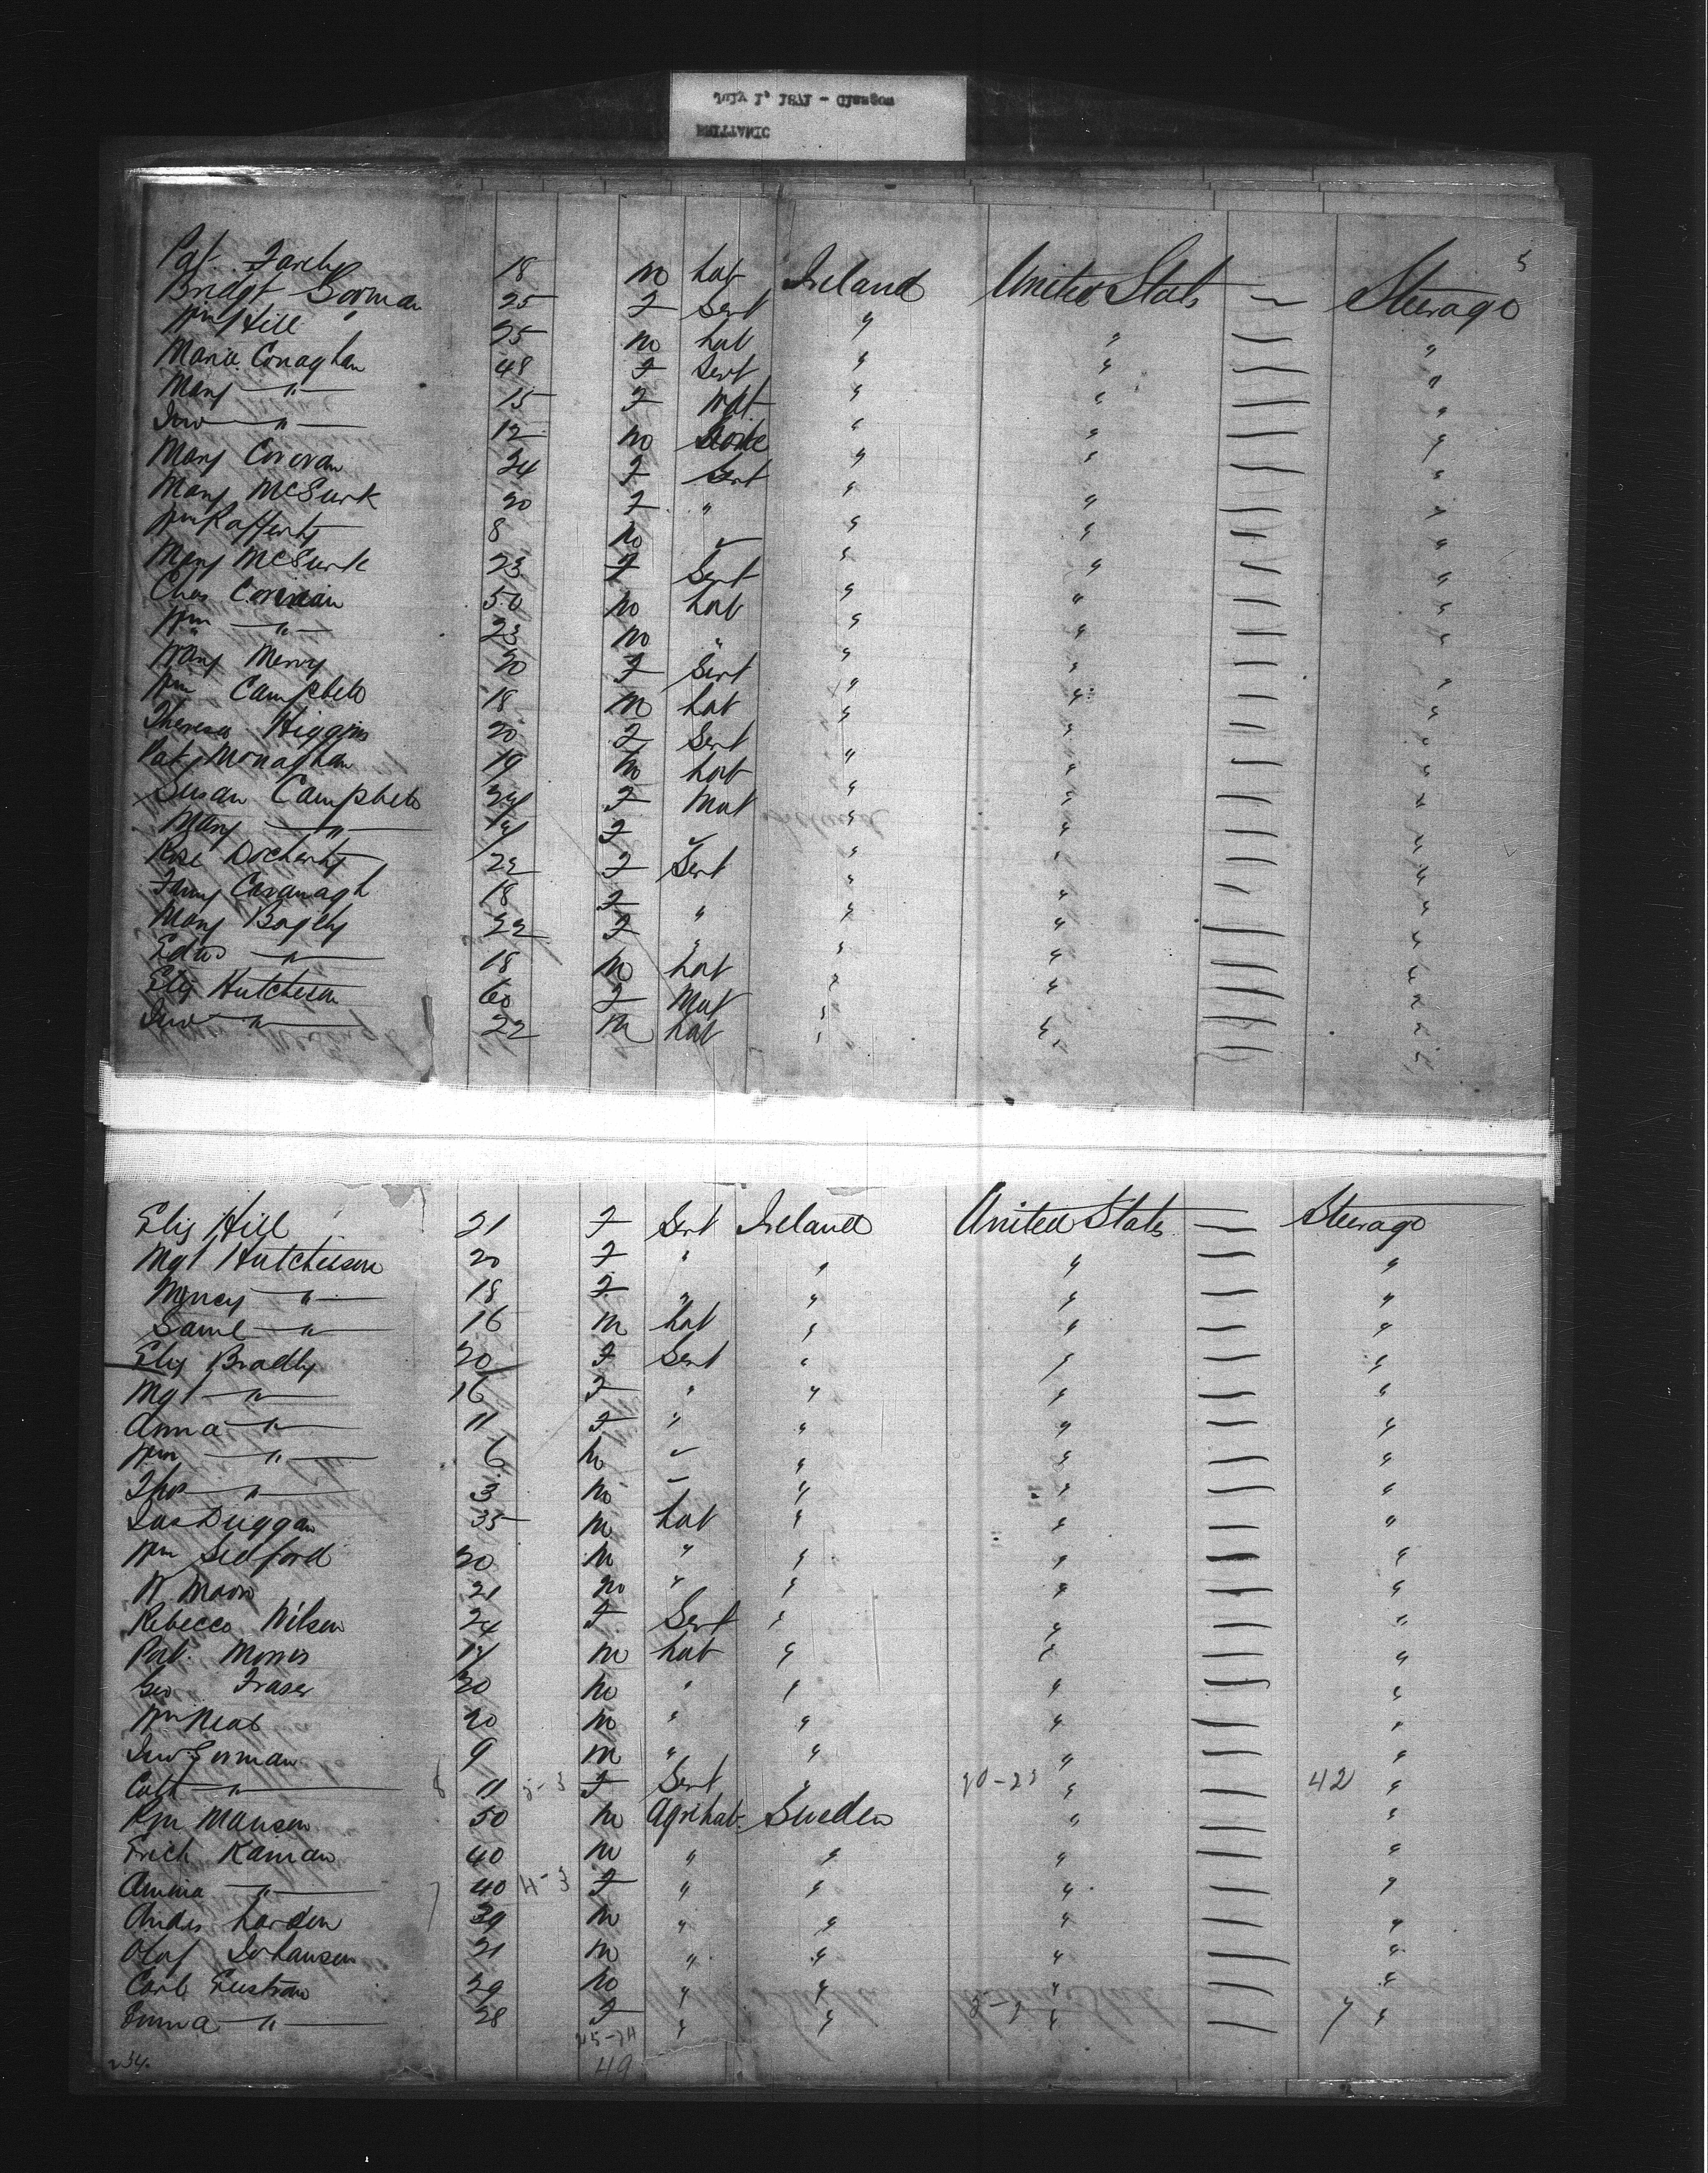 5
Pat Farely 18 M Lab Ireland United Stats — Steerage
Bridgt Gorman 25 F Servt " " — "
Wm Hill 25 M Lab " " — "
Maria Conaghan 48 F Servt " " — "
Mary — " — 15 F Mat " " — "
Jno — " — 12 M " " — "
Mary Corcoran 24 F Servt " " — "
Mary McGurk 20 F " " " — "
Wm Rafferty 8 M " " — "
Mary McGurk 23 F Servt " " — "
Chas Corcoran 50 M Lab " " — "
Wm — " — 23 M " " " — "
Mary Merry 20 F Servt " " — "
Wm Campbell 18 M Lab " " — "
Theresa Higgins 20 F Servt " " — "
Pat Monaghan 19 M Lab " " — "
Susan Campbell 24 F Mat " " — "
Mary — " — F " " — "
Rose Docherty 22 F Servt " " — "
Fanny Cavanagh 18 F " " " — "
Mary Bagley 22 F " " " — "
Edwd — " — 18 M Lab " " — "
Eliz Hutcheson 60 F Mat " " — "
Jno — " — 22 M Lab " " — "
Eliz Hill 21 F Servt Ireland United Stats — Steerage
Mgt Hutcheson 20 F " " " — "
Nancy — " — 18 F " " " — "
Saml — " — 16 M Lab " " — "
Eliz Bradly 20 F Servt " " — "
Mgt — " — 16 F " " " — "
Anna — " — 11 F " " " — "
Wm — " — 6 M " " — "
Thos — " — 3 M " " — "
Jas Duggan 35 M Lab " " — "
Wm Sedford 20 M " " " — "
W. Moore 21 M " " " — "
Rebecca Wilson 24 F Servt " " — "
Pat. Morris 14 M Lab " " — "
Geo Fraser 20 M " " " — "
Wm Neal 20 M " " " — "
Jno Gorman 9 M " " " — "
Cath — " — 11 5-3 F Servt " 20-23 " — 42 "
Wm Manson 50 M Agri Lab Sweden " — "
Erich Kaman 40 M " " " — "
Amina — " — 40 4-3 F " " " — "
Andrs Larsen 39 M " " " — "
Olof Johansen 21 M " " " — "
Carl Enstrom 29 M " " " — "
Emma — " — 28 F " " " — 7 "
25-24
49